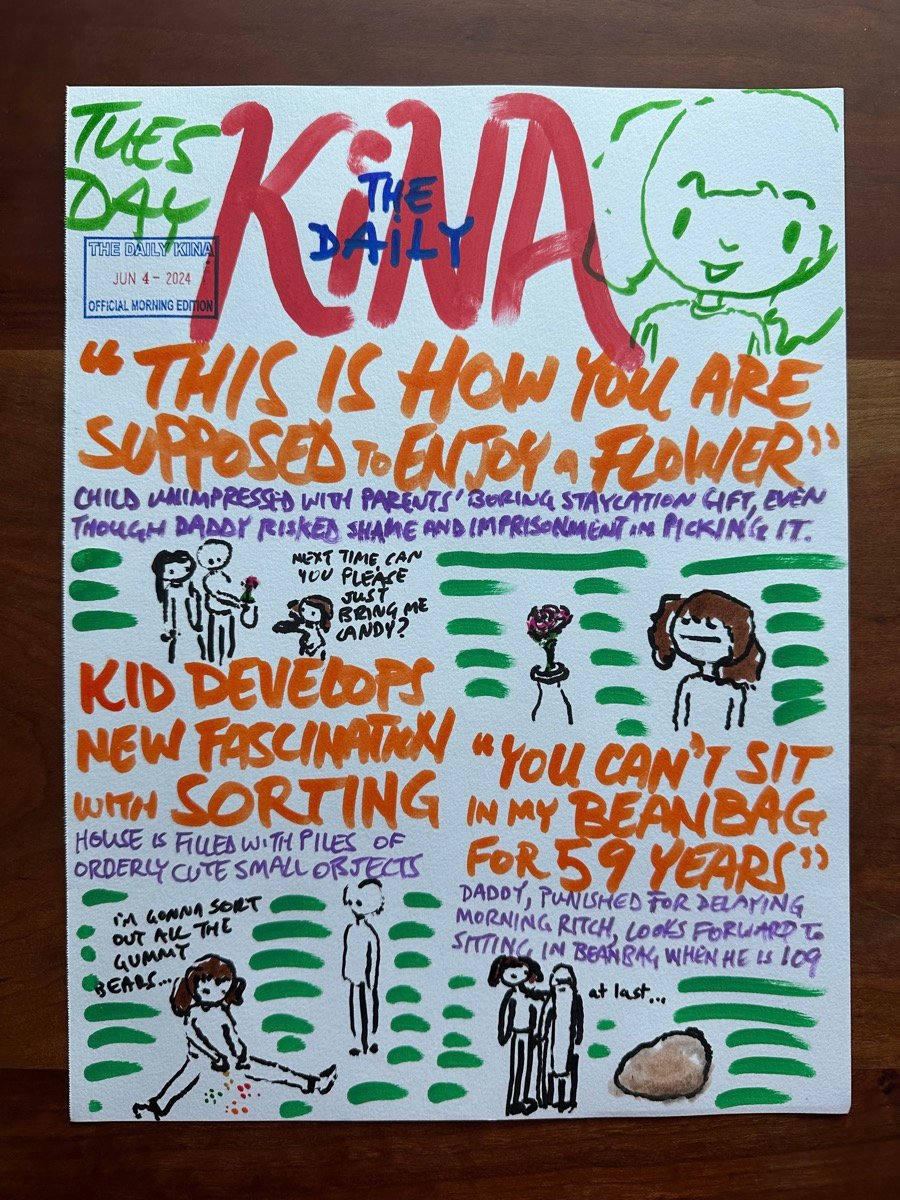 TUES
DAY
KiNA
THE
DAiLY
THE DAILY KINA
JUN 4 - 2024
OFFICIAL MORNING EDITION
“THIS IS HOW YOU ARE
SUPPOSED TO ENJOY A FLOWER”
CHILD UNIMPRESSED WITH PARENTS’ BORING STAYCATION GIFT, EVEN
THOUGH DADDY RISKED SHAME AND IMPRISONMENT IN PICKING IT.
NEXT TIME CAN
YOU PLEASE
JUST
BRING ME
CANDY?
KID DEVELOPS
NEW FASCINATION
WITH SORTING
HOUSE IS FILLED WITH PILES OF
ORDERLY CUTE SMALL OBJECTS
i’M GONNA SORT
OUT ALL THE
GUMMY
BEARS...
“YOU CAN’T SIT
IN MY BEANBAG
FOR 59 YEARS”
DADDY, PUNISHED FOR DELAYING
MORNING RITCH, LOOKS FORWARD TO
SITTING IN BEANBAG WHEN HE IS 109
at last...